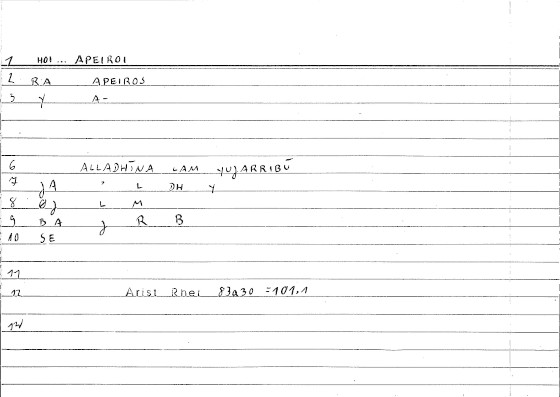 1 HOI ... APEIROI
2 RA APEIROS
3 Y A-
6 ALLADHĪNA LAM YUJARRIBŪ
7 JA ' L DH Y
8 ØJ L M
9 BA J R B
10 SE
11
12 Arist Rhei 83a30 = 101,1
14